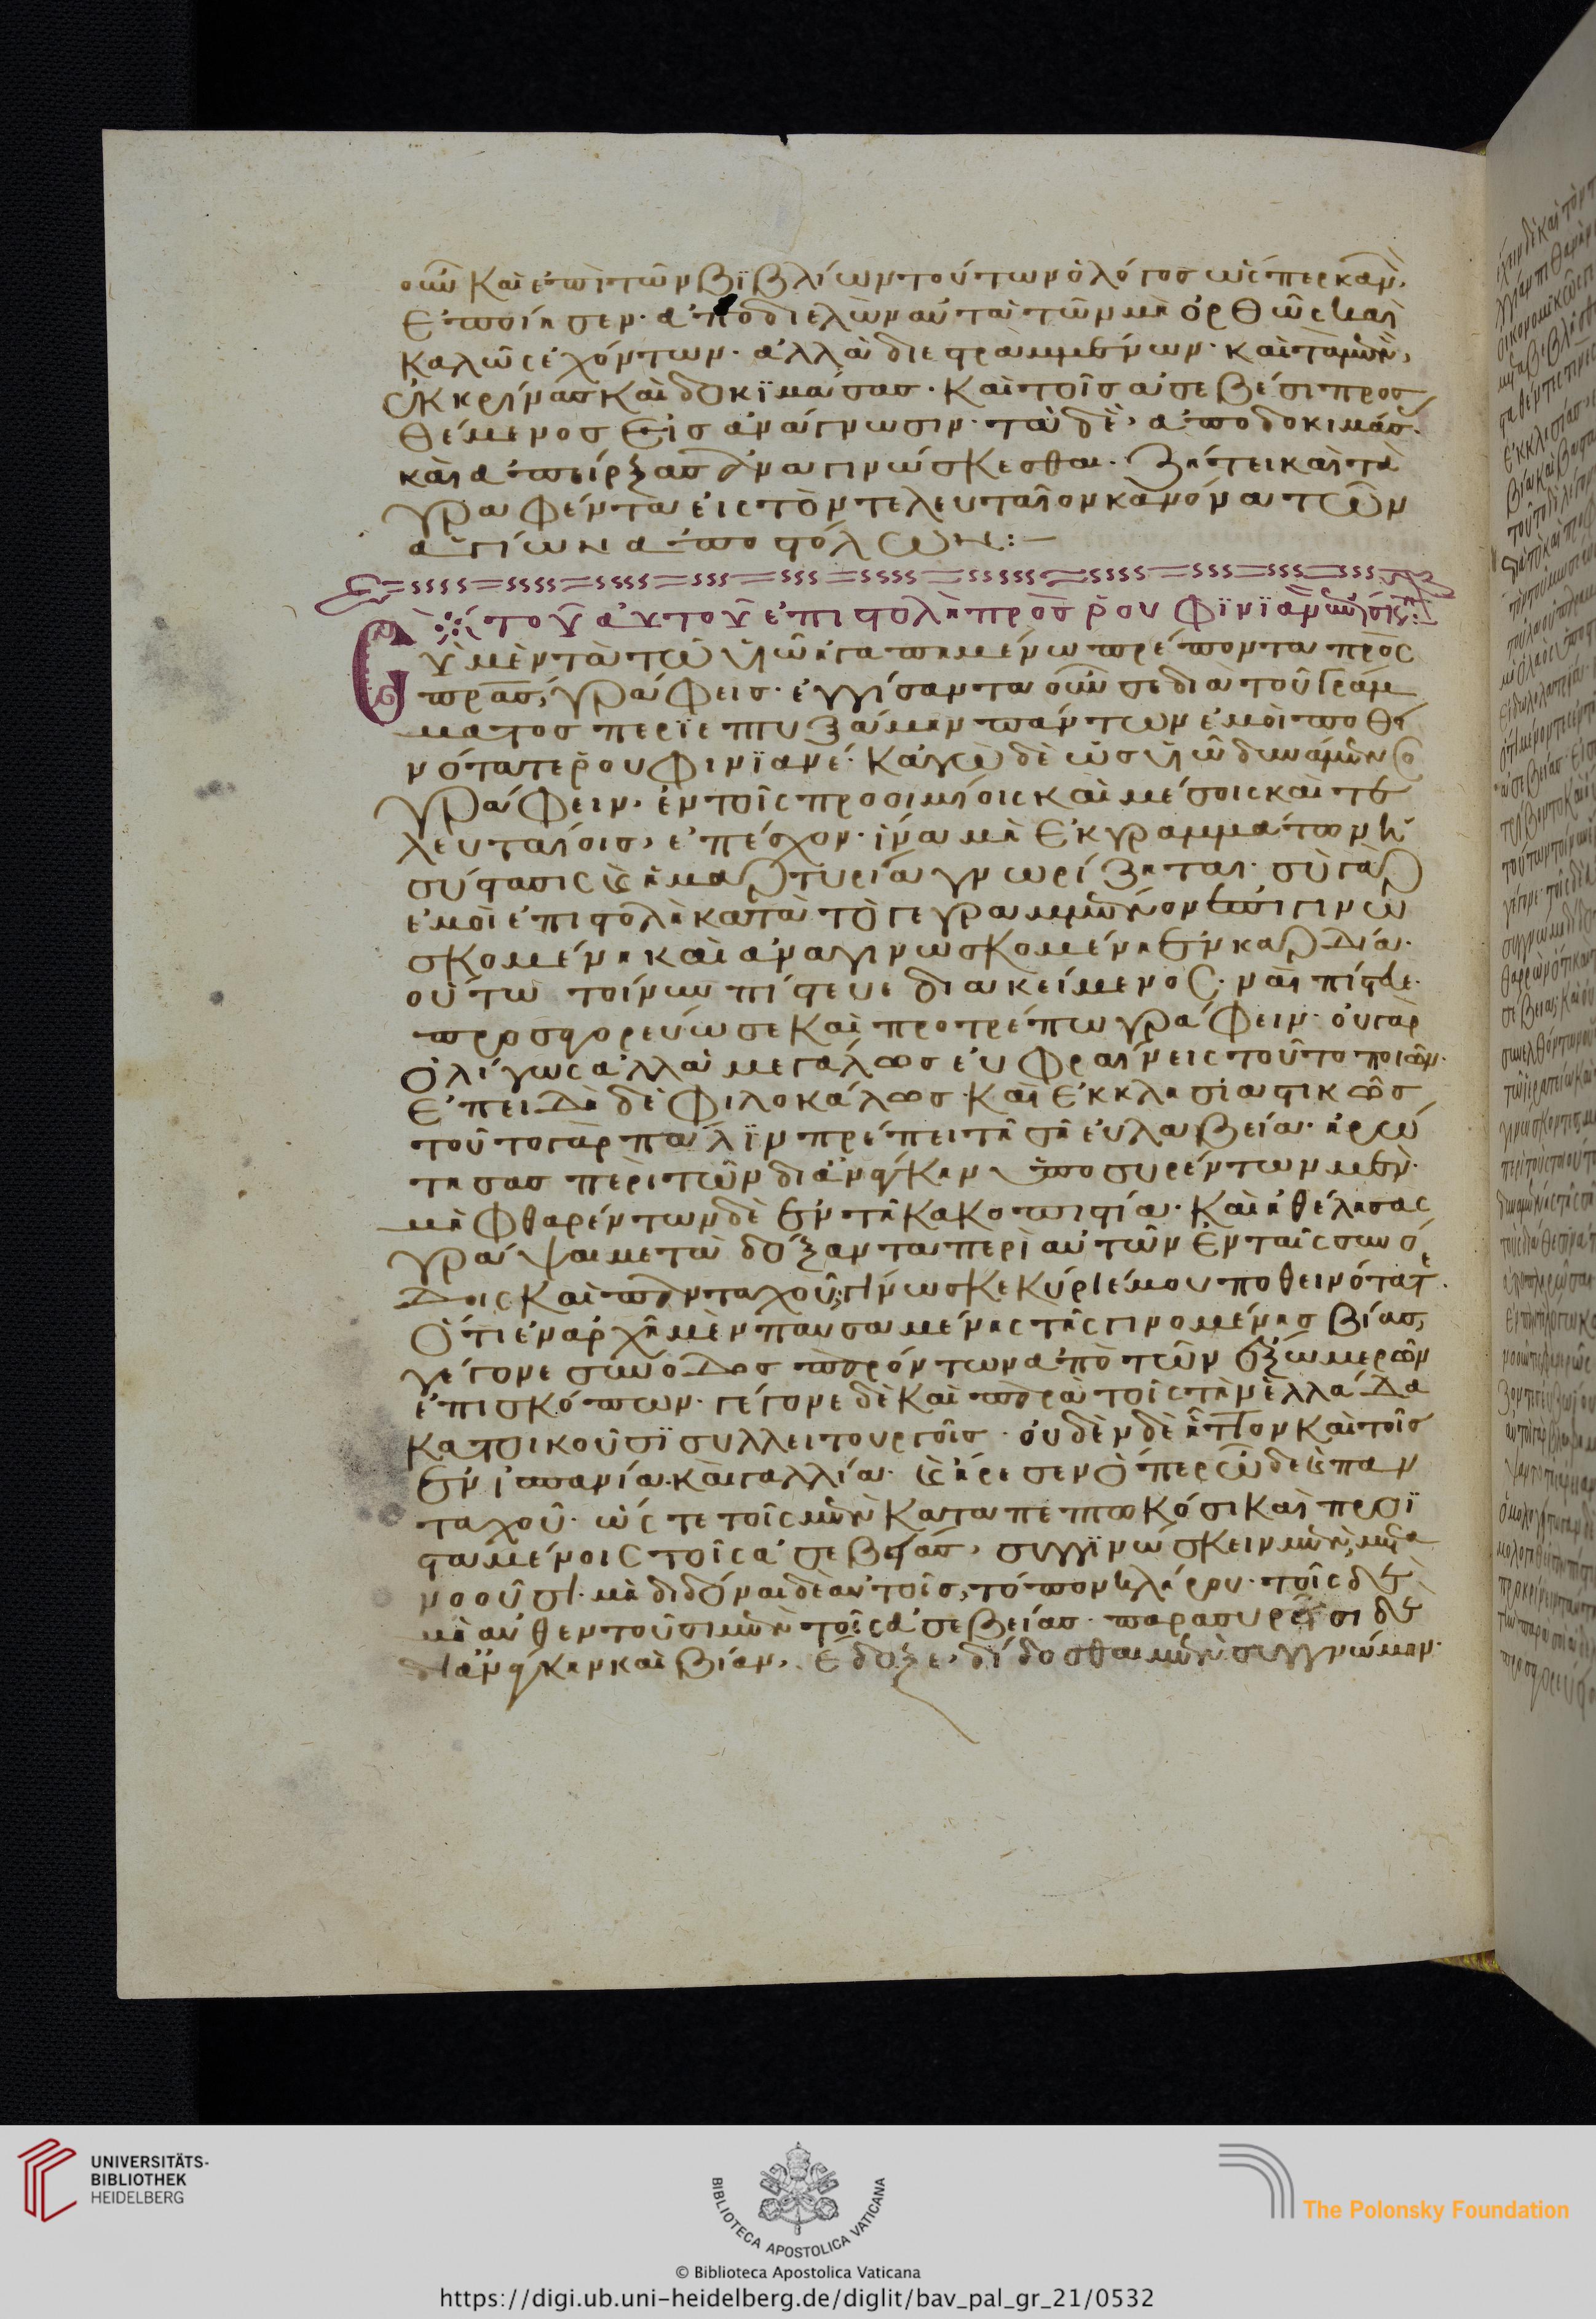 οὖν καὶ ἐπὶ τῶν βϊβλίων τούτων ὁ λόγος ὥσπερ κανὼν
ἐποίησεν· ἀποδιελὼν αὐτὰ τῶν μὴ ὀρθῶς καὶ
καλῶς ἐχόντων· ἀλλὰ διεστραμμένων· καὶ τὰ μὲν,
ἐκκρίνας καὶ δοκϊμάσας· καὶ τοῖς ἀσεβέσι προσ
θέμενος εἰς ἀνάγνωσιν· τὰ δὲ, ἀποδοκιμάσας
καὶ ἀπείρξας ἀναγινώσκεσθαι· ζήτει καὶ τὰ
γραφέντα εἰς τὸν τελευταῖον κανόνα τῶν
ἁγίων ἀποστόλων:–
τοῦ αὐτοῦ ἐπιστολὴ πρὸς ῥουφϊνϊανὸν ἐπίσκοπον:
Σὺ μὲν τὰ τῷ υἱῷ ἠγαπημένω πρέποντα πρὸς
πατέρας, γράφεις· ἐγγίσαντα οὖν σε διὰ τοῦ γράμ
ματος περϊεπτυξάμην πάντων ἐμοὶ ποθει
νότατε ῥουφινϊανέ· κἀγὼ δὲ ὡς υἱῶ δυνάμενος
γράφειν· ἐν τοῖς προοιμίοις καὶ μέσοις καὶ τε
λευταίοις, ἐπέσχον· ἵνα μὴ ἐκ γραμμάτων ἡ
σύστασις καὶ ἡ μαρτυρία γνωρίζηται· σὺ γὰρ
ἐμοὶ ἐπιστολὴ κατὰ τὸ γεγραμμένον ἐπιγινω
σκομένη καὶ ἀναγινωσκομένη ἐν καρδία·
οὕτω τοίνυν πίστευε διακείμενος· ναὶ πίστευε·
προσαγορεύω σε καὶ προτρέπω γράφειν· οὐ γὰρ
ὀλίγως ἀλλὰ μεγάλως εὐφραίνεις τοῦτο ποιῶν·
ἐπειδὴ δὲ φιλοκάλως καὶ ἐκκλησιαστικῶς
τοῦτο γὰρ πάλϊν πρέπει τῆ σῆ εὐλαβεία· ἠρώ
τησας περὶ τῶν δι ἀνάγκην ὑποσυρέντων μὲν·
μὴ φθαρέντων δὲ ἐν τῆ κακοπιστία· καὶ ἠθέλησας
γράψαι με τὰ δόξαντα περὶ αὐτῶν ἐν ταῖς συνό
δοις καὶ πανταχοῦ; γίνωσκε κύριέ μου ποθεινότατε·
ὅτι ἐν ἀρχῆ μὲν παυσαμένης τῆς γινομένης βίας,
γέγονε σύνοδος παρόντων ἀπὸ τῶν ἔξω μερῶν
ἐπισκόπων· γέγονε δὲ καὶ παρὰ τοῖς τὴν ἑλλάδα
κατοικοῦσϊ συλλειτουργοῖς· οὐδὲν δὲ ἧττον καὶ τοῖς
ἐν ἱσπανία καὶ γαλλία· καὶ ἤρεσεν ὅπερ ὧδε καὶ παν
ταχοῦ· ὥστε τοῖς μὲν καταπεπτωκόσι καὶ προϊ
σταμένοις τοῖς ἀσεβείας, συγγϊνώσκειν μὲν, μετα
νοοῦσι· μὴ διδόναι δὲ αὐτοῖς, τόπον κλήρου· τοῖς δὲ
μὴ αὐθεντοῦσι μὲν τοῖς ἀσεβείας· παρασυρεῖσι δὲ
δι ἀνάγκην καὶ βίαν, ἔδοξε, δίδοσθαι μὲν συγγνώμην·
UNIVERSITÄTS-
BIBLIOTHEK
HEIDELBERG
BIBLIOTECA APOSTOLICA VATICANA
The Polonsky Foundation
© Biblioteca Apostolica Vaticana
https://digi.ub.uni-heidelberg.de/diglit/bav_pal_gr_21/0532